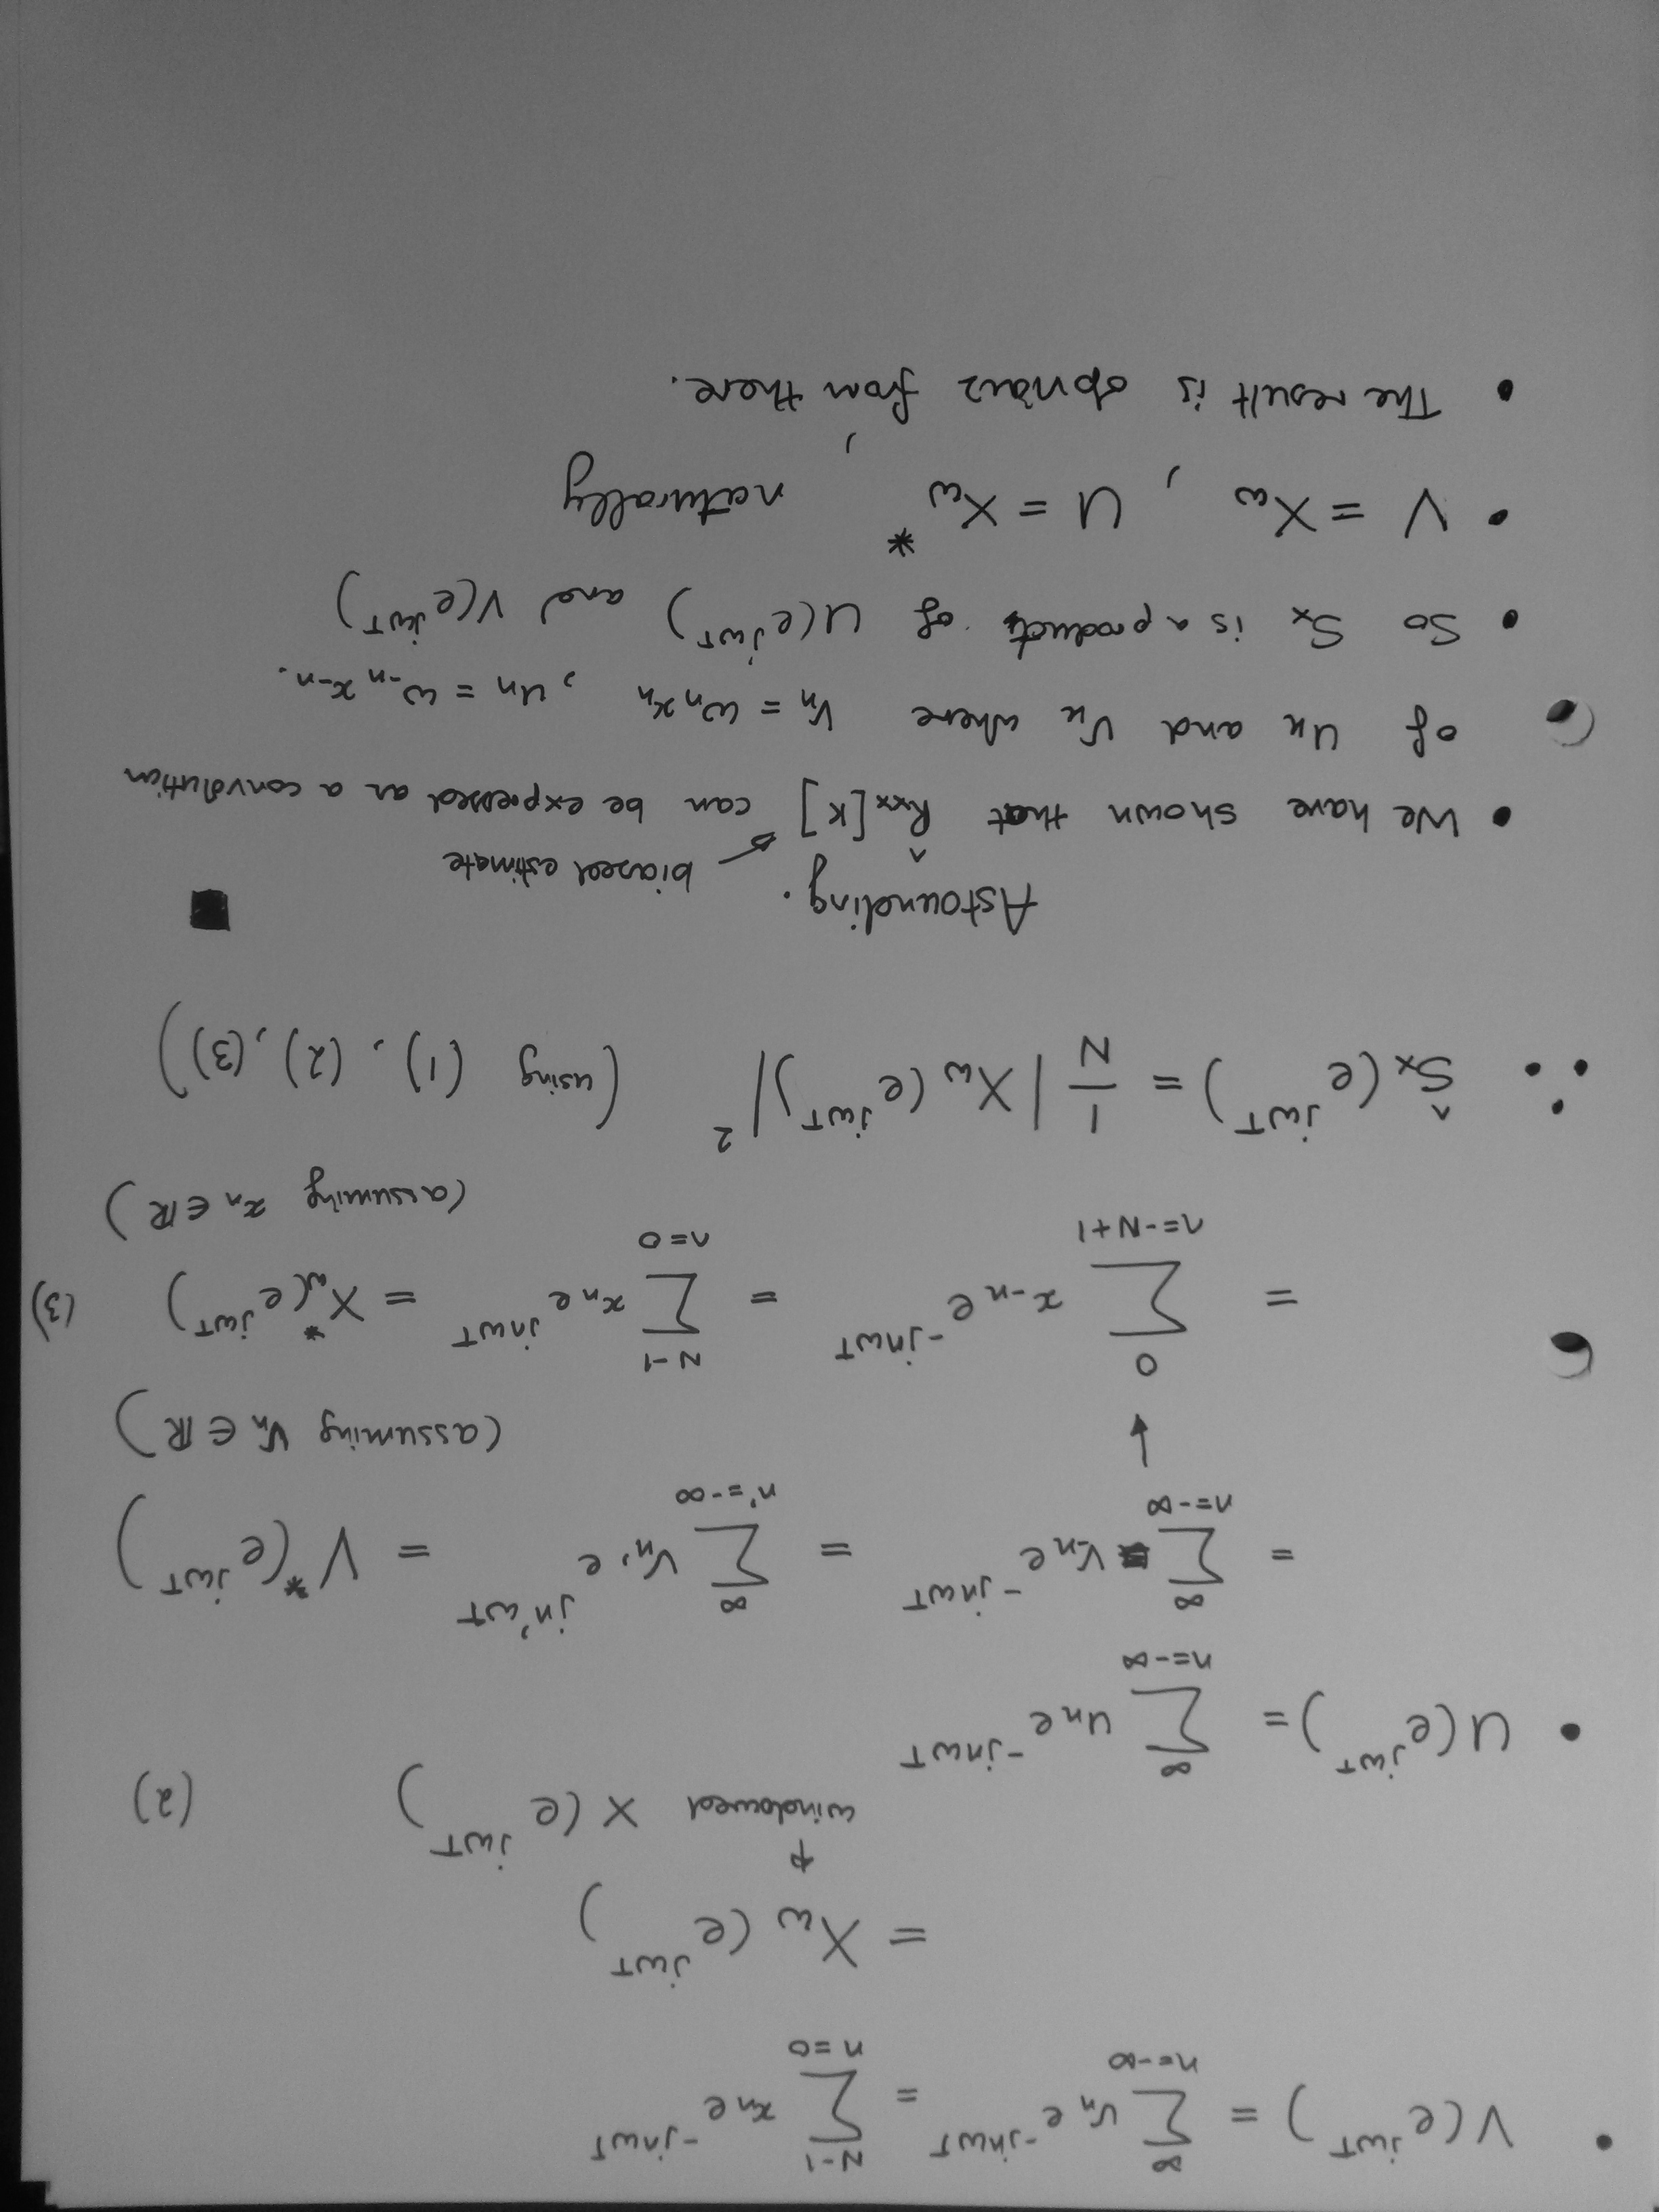 • V(e^{jωT}) = ∑_{n=-∞}^{∞} v_n e^{-jnωT} = ∑_{n=0}^{N-1} x_n e^{-jnωT}
= X_w(e^{jωT})
↑
windowed X(e^{jωT}) (2)
• U(e^{jωT}) = ∑_{n=-∞}^{∞} u_n e^{-jnωT}
= ∑_{n=-∞}^{∞} v_{-n} e^{-jnωT} = ∑_{n'=-∞}^{∞} v_{n'} e^{jn'ωT} = V*(e^{jωT})
(assuming v_n ∈ ℝ)
= ∑_{n=-N+1}^{0} x_{-n} e^{-jnωT} = ∑_{n=0}^{N-1} x_n e^{jnωT} = X_w*(e^{jωT}) (3)
(assuming x_n ∈ ℝ)
∴ Ŝ_x(e^{jωT}) = 1/N |X_w(e^{jωT})|² (using (1), (2), (3))
Astounding. ■
biased estimate
• We have shown that R̂_xx[k] can be expressed as a convolution
of u_k and v_k where v_n = w_n x_n, u_n = w_{-n} x_{-n}.
• So S_x is a product of U(e^{jωT}) and V(e^{jωT})
• V = X_w, U = X_w*, naturally
• The result is obvious from there.